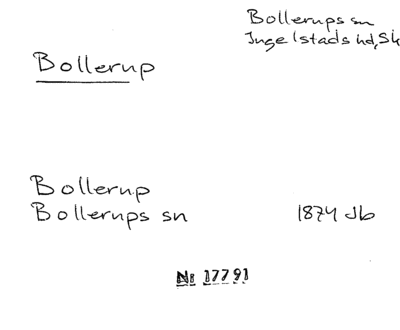 Bollerups sn
Ingelstads hd, Sk
Bollerup
Bollerup
Bollerups sn 1874 Jb
Nr 17791